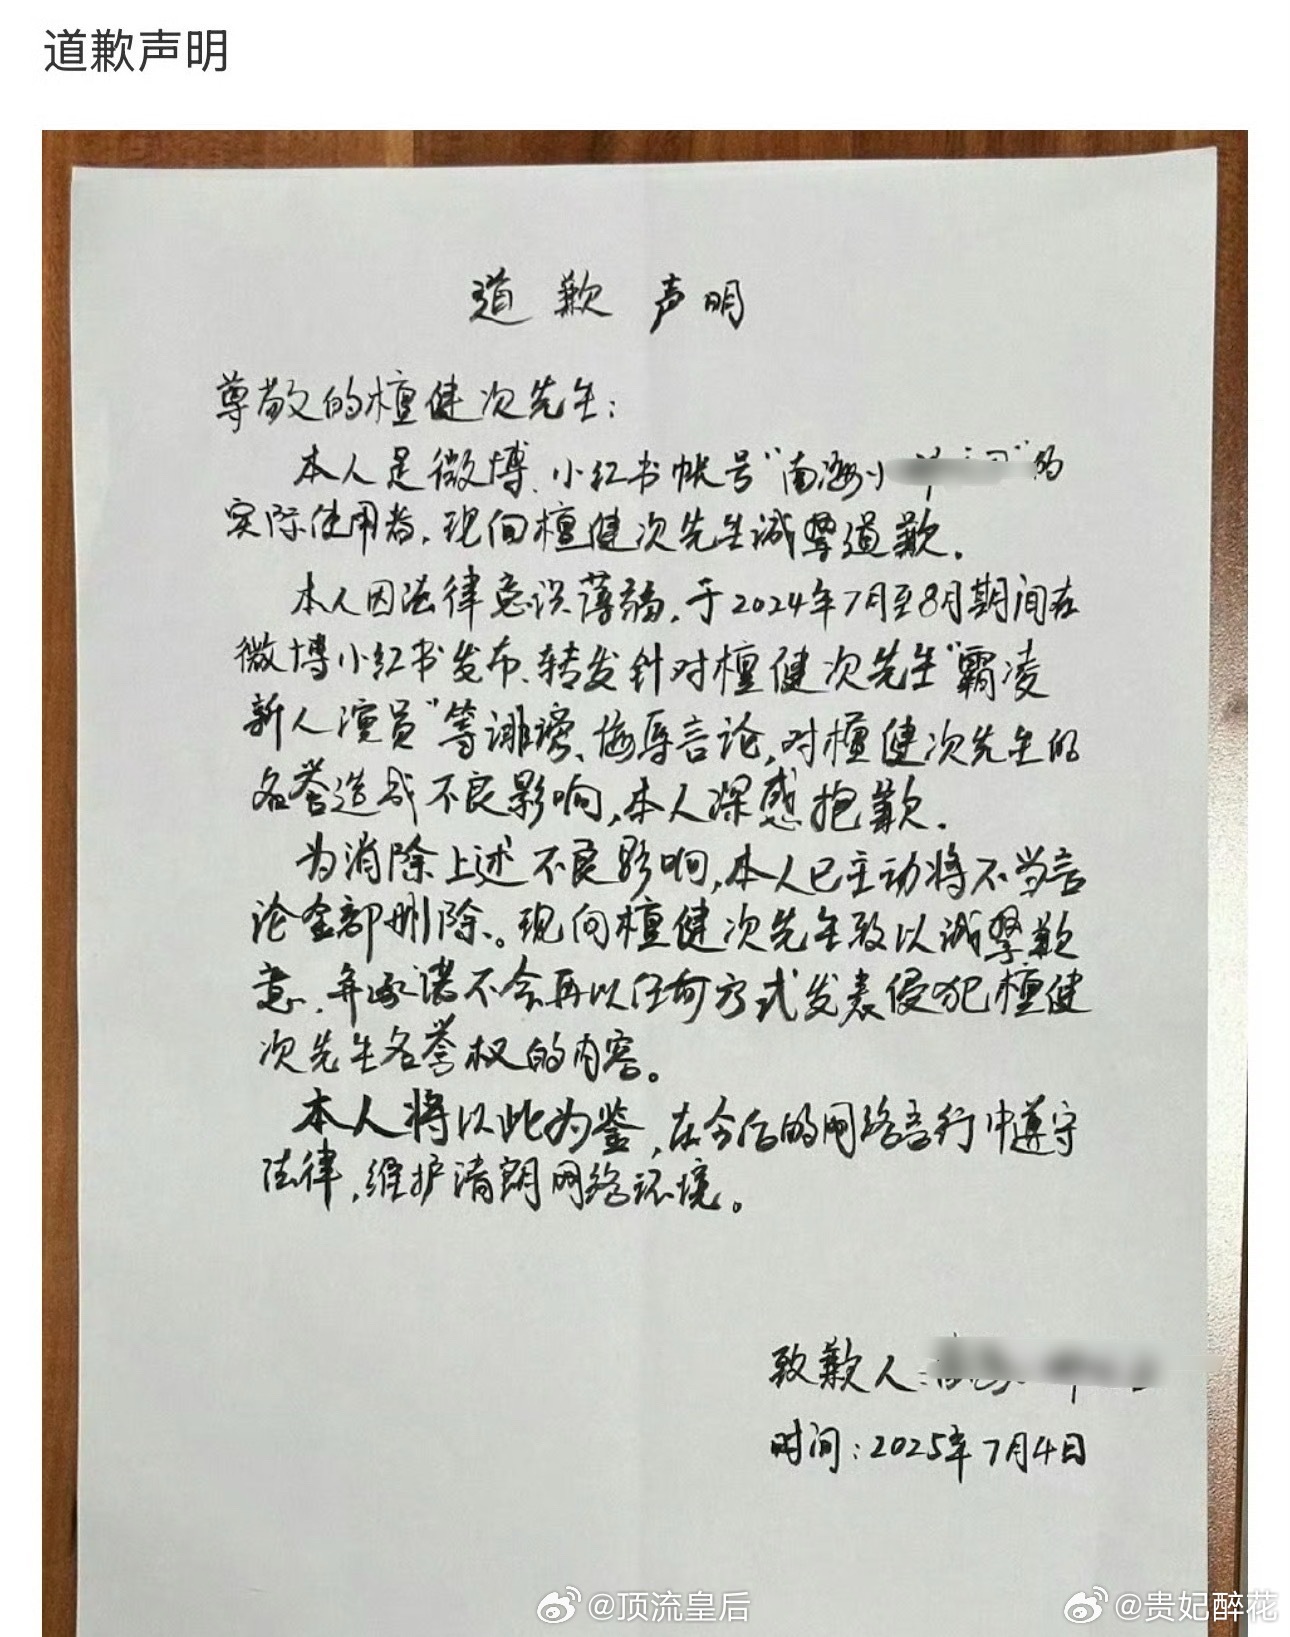 道歉声明
道歉声明
尊敬的檀健次先生：
本人是微博、小红书帐号“南海小”的
实际使用者，现向檀健次先生诚挚道歉。
本人因法律意识薄弱，于2024年7月至8月期间在
微博小红书发布、转发针对檀健次先生“霸凌
新人演员”等诽谤、侮辱言论，对檀健次先生的
名誉造成不良影响，本人深感抱歉。
为消除上述不良影响，本人已主动将不当言
论全部删除。现向檀健次先生致以诚挚歉
意，并承诺不会再以任何方式发表侵犯檀健
次先生名誉权的内容。
本人将以此为鉴，在今后的网络言行中遵守
法律，维护清朗网络环境。
致歉人：
时间：2025年7月4日
@顶流皇后
@贵妃醉花